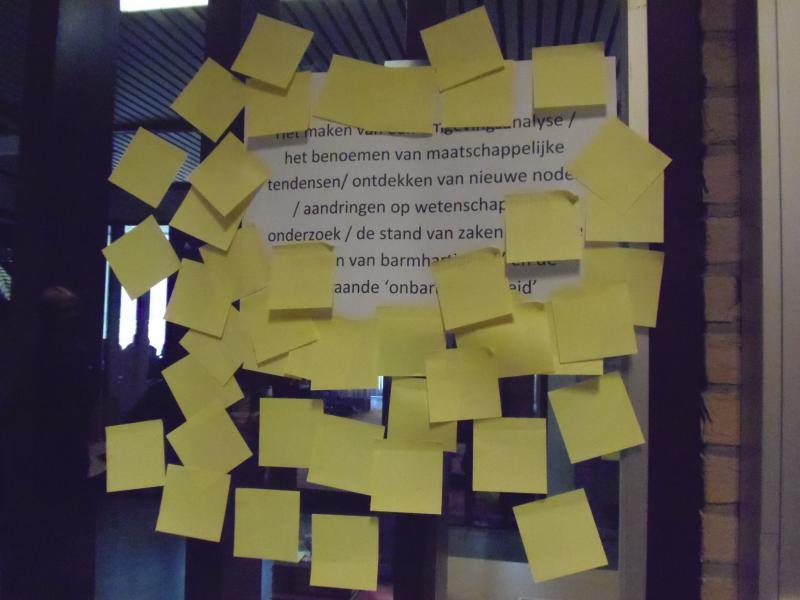 Het maken van een omgevingsanalyse /
het benoemen van maatschappelijke
tendensen/ ontdekken van nieuwe node
/ aandringen op wetenschap
onderzoek / de stand van zaken
n van barmhartig en de
aande ‘onbar eid’